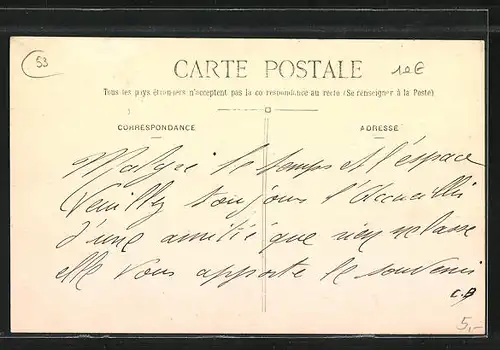 53
CARTE POSTALE
10€
Tous les pays étrangers n'acceptent pas la correspondance au recto (Se renseigner à la Poste)
CORRESPONDANCE
ADRESSE
Malgré le temps et l'espace
Veuillez toujours l'accueillir
d'une amitié que rien ne lasse
elle vous apporte le souvenir
C.B
5,-